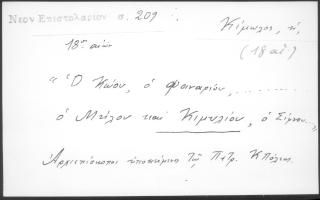 Νεον Επιστολαριον σ. 209
Κίμωλος, ἡ,
18ος αἰών
(18 αἰ)
"Ὁ Κώου, ὁ Φαιναρίου, ........
ὁ Μήλου καὶ Κιμωλίου, ὁ Σίφνου...
Ἀρχιεπίσκοποι ὑποκείμενοι τῷ Πατρ. ΚΠόλεως.